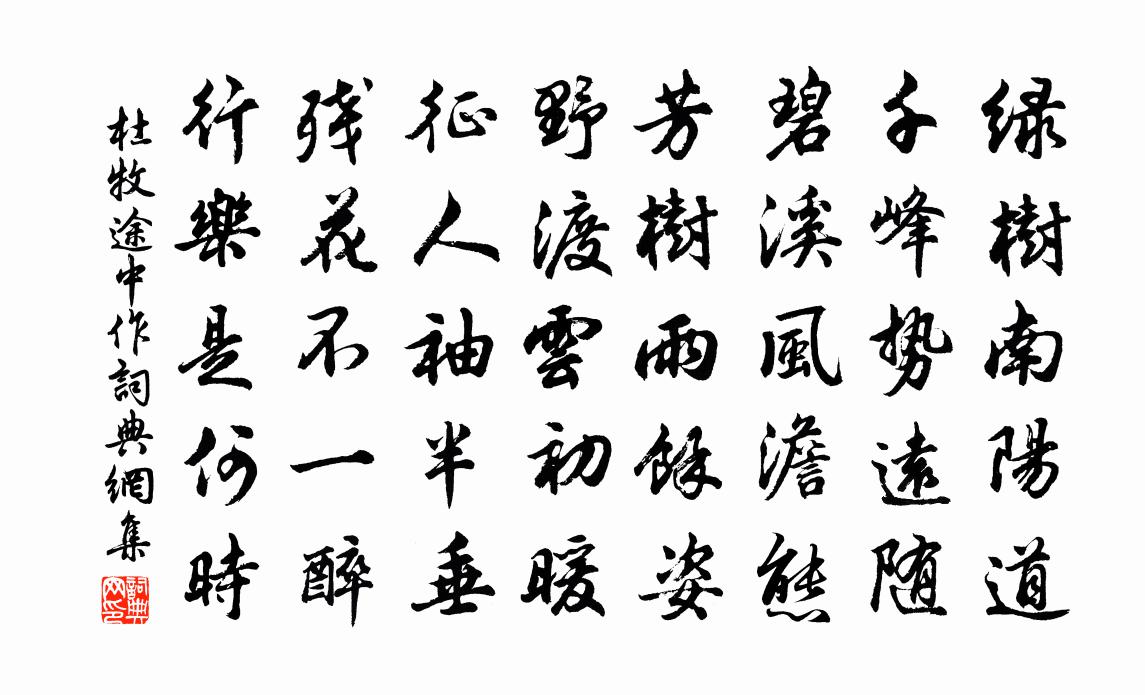 绿樹南陽道
千峰勢遠随
碧溪風澹態
芳樹雨餘姿
野渡雲初暖
征人袖半垂
残花不一醉
行樂是何時
杜牧途中作詞典網集
詞典網印